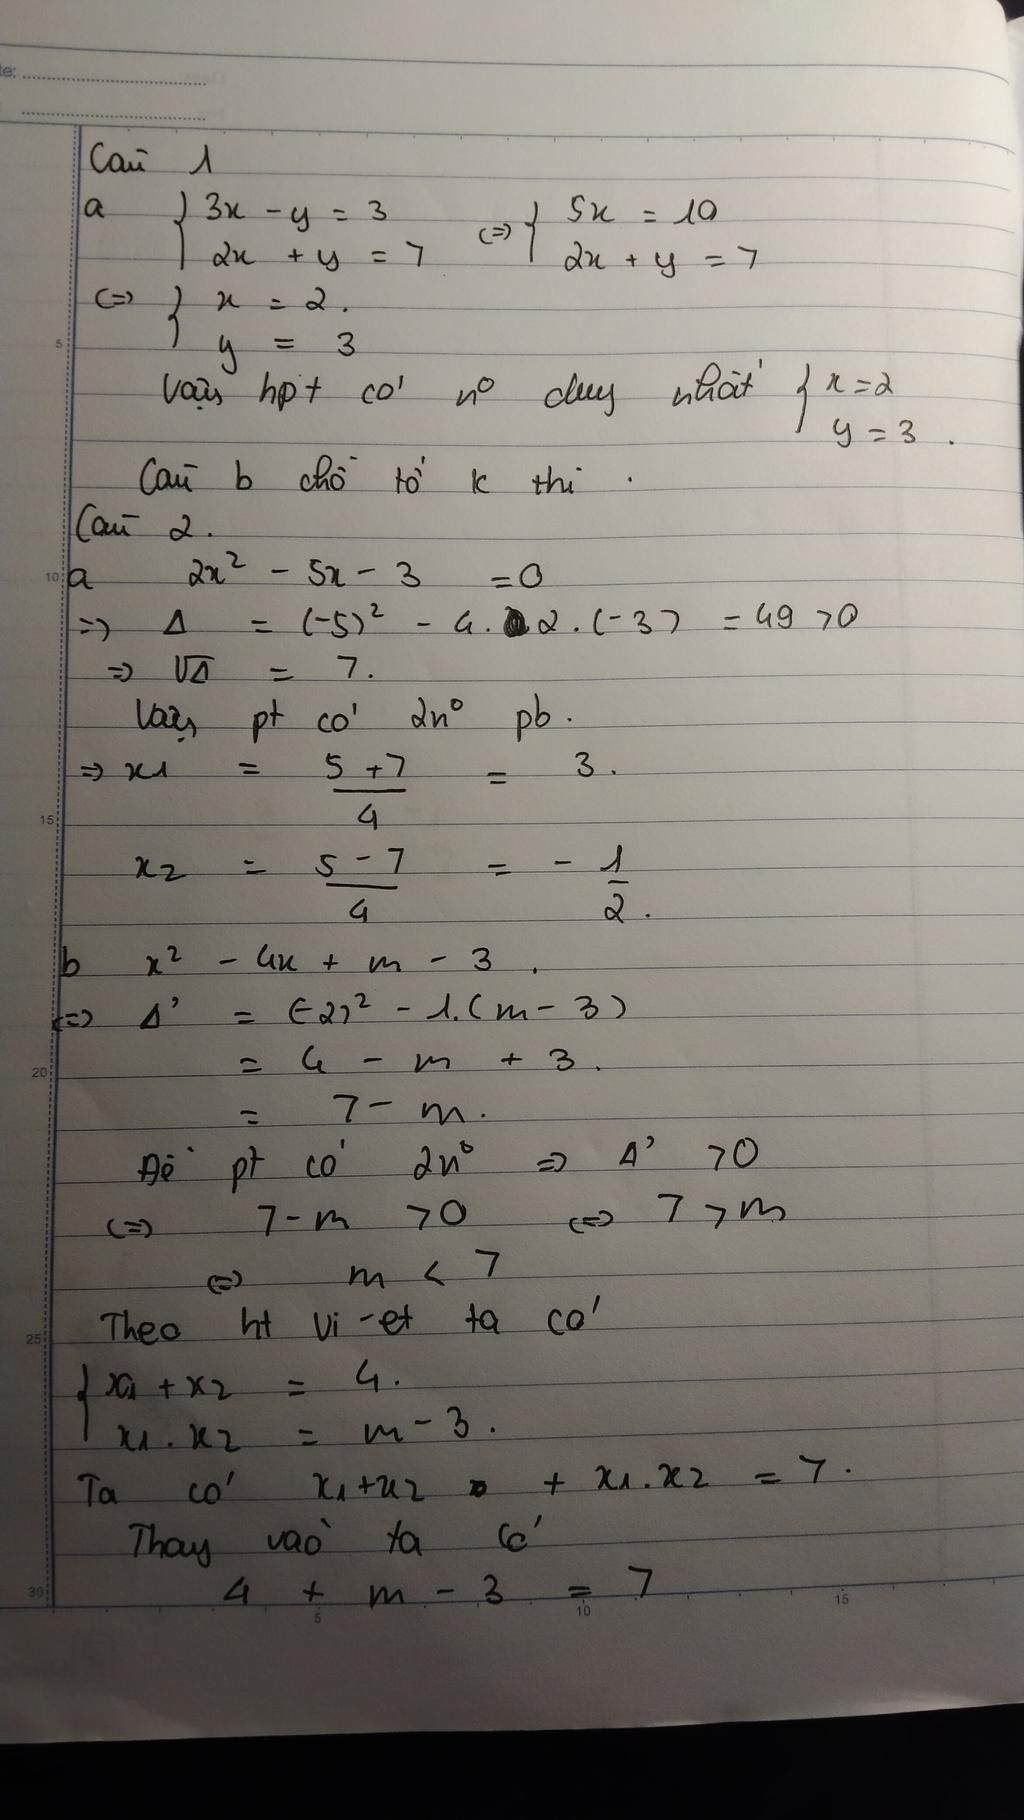 te: ........................
Câu 1
a { 3x - y = 3 <=> { 5x = 10
2x + y = 7 2x + y = 7
<=> { x = 2.
y = 3
Vậy hpt có n° duy nhất { x = 2
y = 3 .
Câu b chỗ tớ k thi .
Câu 2.
a 2x² - 5x - 3 = 0
=> Δ = (-5)² - 4. 2. (-3) = 49 > 0
=> √Δ = 7.
Vậy pt có 2n° pb.
=> x1 = (5 + 7)/4 = 3.
x2 = (5 - 7)/4 = - 1/2.
b x² - 4x + m - 3 .
<=> Δ' = (-2)² - 1.(m - 3)
= 4 - m + 3.
= 7 - m.
Để pt có 2n° => Δ' > 0
<=> 7 - m > 0 <=> 7 > m
<=> m < 7
Theo ht vi-et ta có
{ x1 + x2 = 4.
x1 . x2 = m - 3.
Ta có x1 + x2 + x1 . x2 = 7.
Thay vào ta có
4 + m - 3 = 7
5
10
15
20
25
30
5 10 15